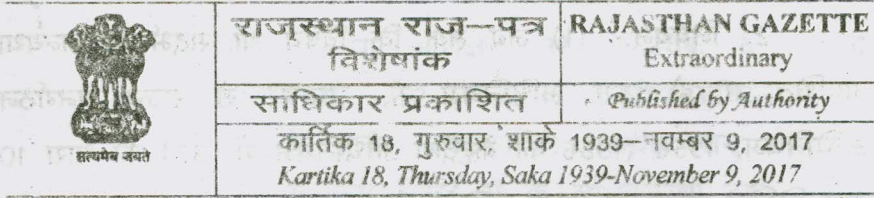 राजस्थान राज—पत्र
विशेषांक
RAJASTHAN GAZETTE
Extraordinary
साधिकार प्रकाशित
Published by Authority
कार्तिक 18, गुरुवार, शाके 1939—नवम्बर 9, 2017
Kartika 18, Thursday, Saka 1939-November 9, 2017
सत्यमेव जयते